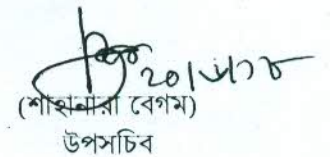 ২০।৬।১৮
(শাহানারা বেগম)
উপসচিব